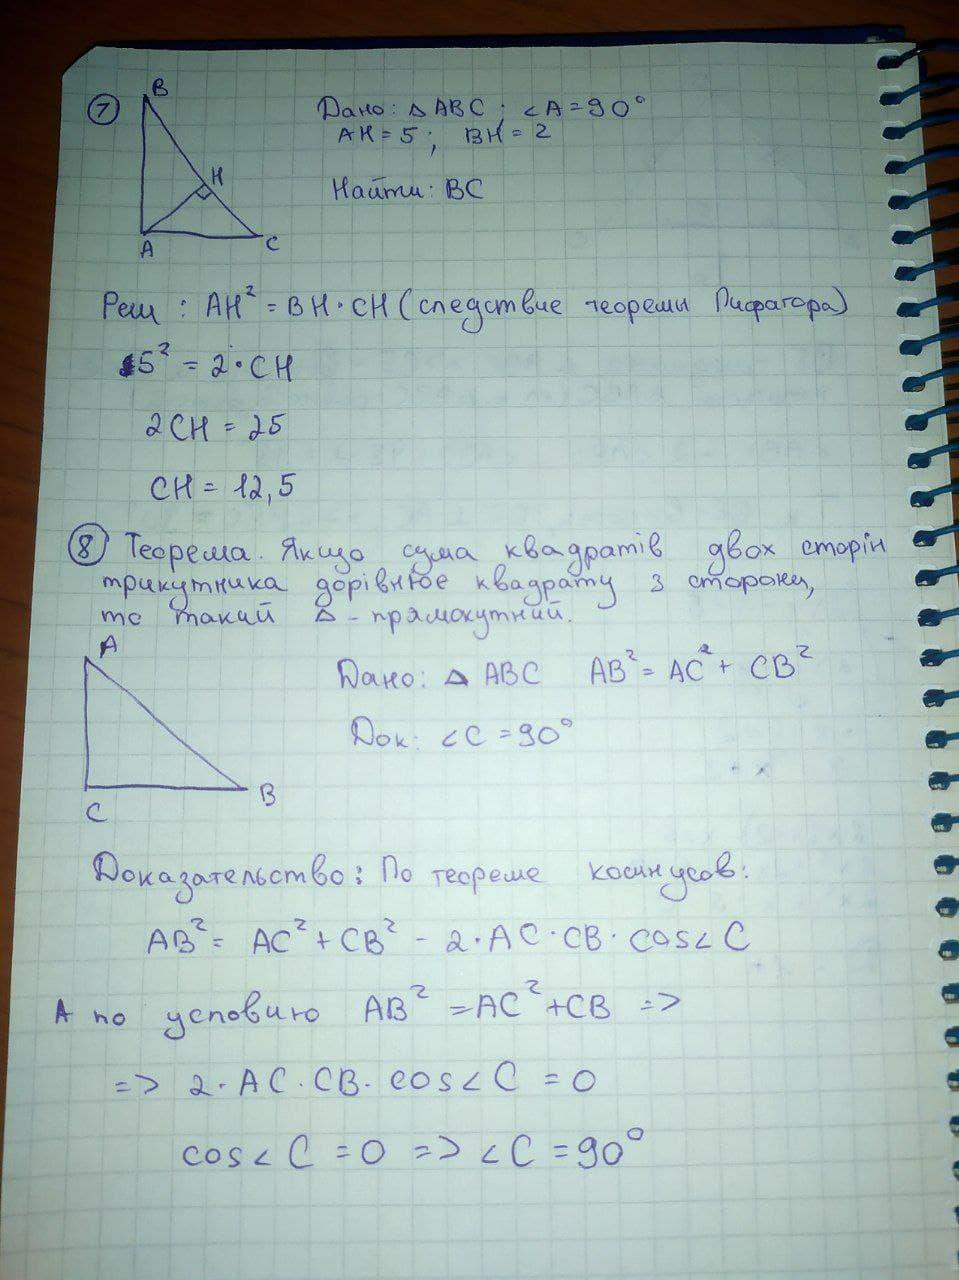 7
B
H
A
C
Дано: △ ABC ; ∠A = 90°
AH = 5 ; BH = 2
Найти: BC
Реш : AH² = BH · CH (следствие теоремы Пифагора)
5² = 2 · CH
2CH = 25
CH = 12,5
8 Теорема. Якщо сума квадратів двох сторін
трикутника дорівнює квадрату 3 сторони,
то такий △ - прямокутний.
A
C
B
Дано: △ ABC AB² = AC² + CB²
Док: ∠C = 90°
Доказательство: По теореме косинусов:
AB² = AC² + CB² - 2 · AC · CB · cos∠C
А по условию AB² = AC² + CB =>
=> 2 · AC · CB · cos∠C = 0
cos∠C = 0 => ∠C = 90°